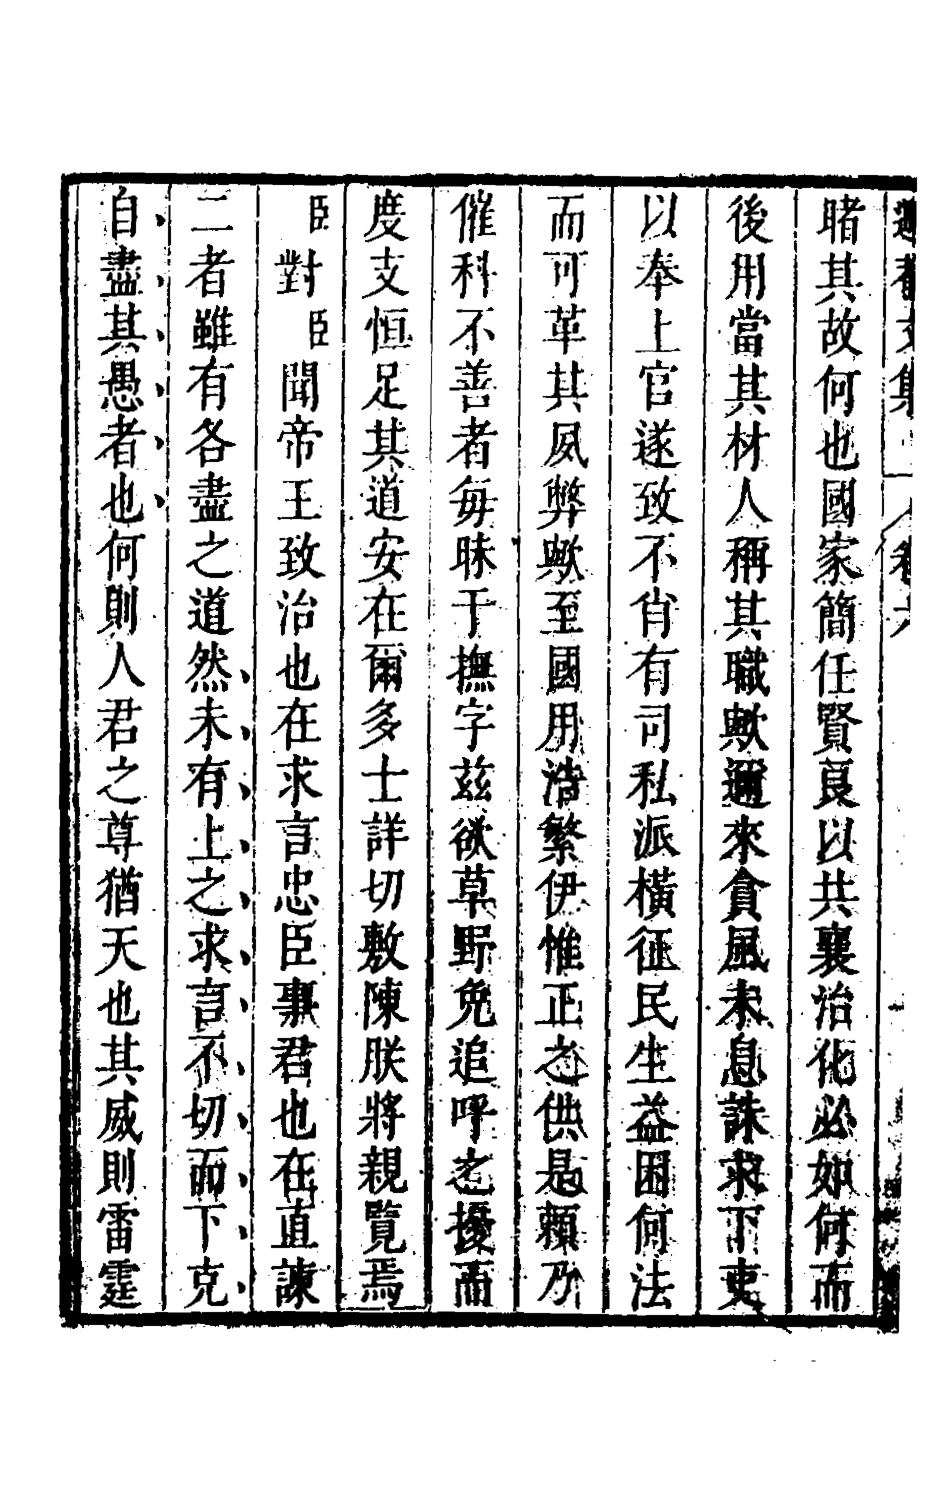 文集 卷六
睹其故何也國家簡任賢良以共襄治化必如何而
後用當其材人稱其職歟邇來貪風未息誅求下吏
以奉上官遂致不肖有司私派橫征民生益困何法
而可革其夙弊歟至國用浩繁伊惟正之供是賴乃
催科不善者每昧于撫字茲欲草野免追呼之擾而
度支恒足其道安在爾多士詳切敷陳朕將親覽焉
臣對臣聞帝王致治也在求言忠臣事君也在直諫
二者雖有各盡之道然未有上之求言不切而下克
自盡其愚者也何則人君之尊猶天也其威則雷霆